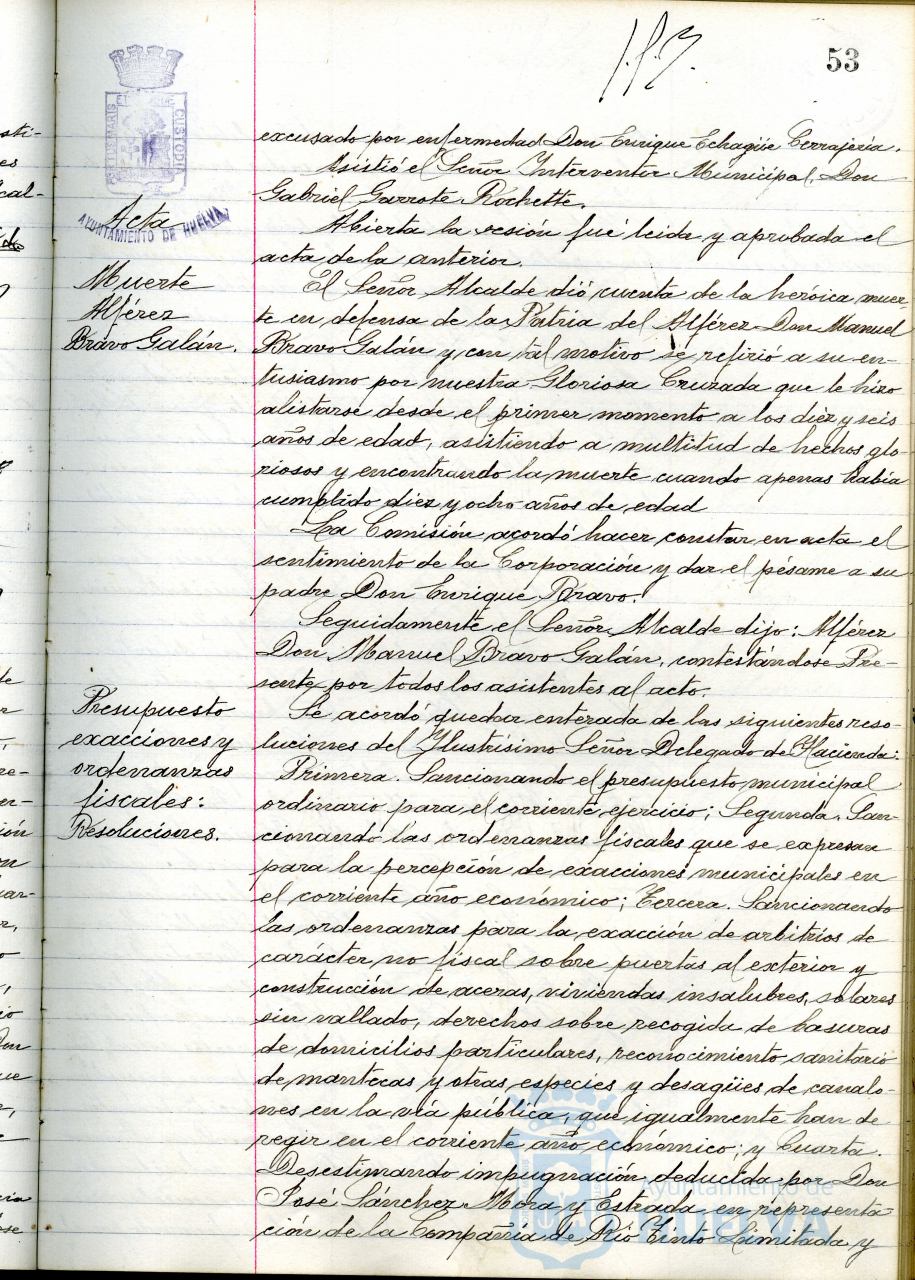 53
AYUNTAMIENTO DE HUELVA
excusado por enfermedad Don Enrique Echagüe Cerrajería.
Asistió el Señor Interventor Municipal, Don
Gabriel Garrote Rochette.
Acta
Abierta la sesión fué leida y aprobada el
acta de la anterior.
Muerte
Alférez
Bravo Galán.
El Señor Alcalde dió cuenta de la heróica muer-
te en defensa de la Patria del Alférez Don Manuel
Bravo Galán y con tal motivo se refirió a su en-
tusiasmo por nuestra Gloriosa Cruzada que le hizo
alistarse desde el primer momento a los diez y seis
años de edad, asistiendo a multitud de hechos glo-
riosos y encontrando la muerte cuando apenas había
cumplido diez y ocho años de edad
La Comisión acordó hacer constar en acta el
sentimiento de la Corporación y dar el pésame a su
padre Don Enrique Bravo.
Seguidamente el Señor Alcalde dijo: Alférez
Don Manuel Bravo Galán, contestándose Pre-
sente por todos los asistentes al acto.
Presupuesto
exacciones y
ordenanzas
fiscales:
Resoluciones.
Se acordó quedar enterada de las siguientes reso-
luciones del Ylustrísimo Señor Delegado de Hacienda:
Primera. Sancionando el presupuesto municipal
ordinario para el corriente ejercicio; Segunda. San-
cionando las ordenanzas fiscales que se expresan
para la percepción de exacciones municipales en
el corriente año económico; Tercera. Sancionando
las ordenanzas para la exacción de arbitrios de
carácter no fiscal sobre puertas al exterior y
construcción de aceras, viviendas insalubres, solares
sin vallado, derechos sobre recogida de basuras
de domicilios particulares, reconocimiento sanitario
de mantecas y otras especies y desagües de canalo-
nes en la vía pública, que igualmente han de
regir en el corriente año económico; y Cuarta.
Desestimando impugnación deducida por Don
José Sánchez Mora y Estrada en representa-
ción de la Compañía de Rió Tinto Limitada y
Ayuntamiento de
HUELVA